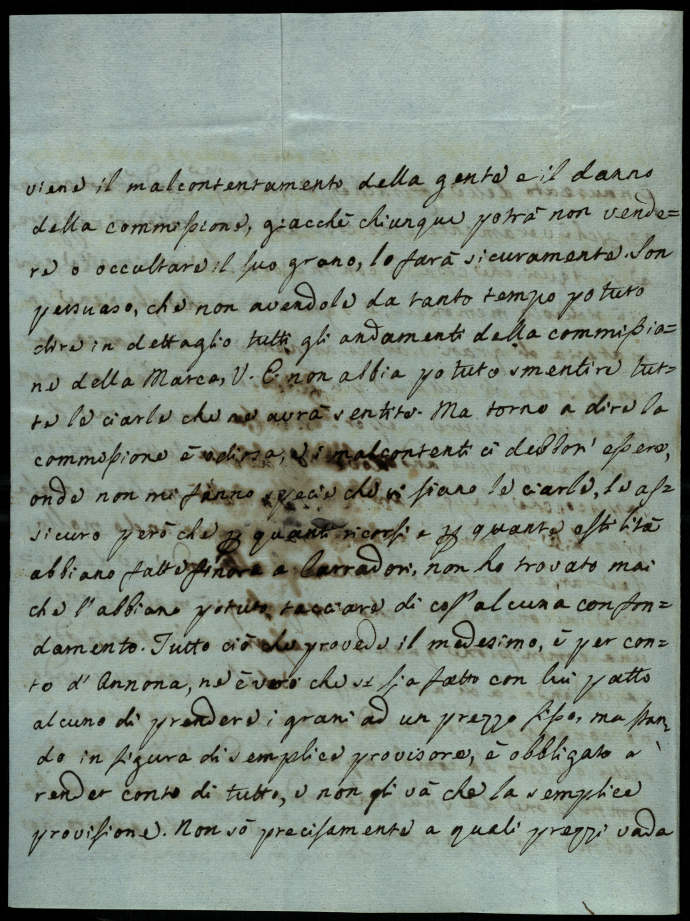 viene il malcontentamento della gente e il danno
della commissione, giacchè chiunque potrà non vende=
re o occultare il suo grano, lo farà sicuramente. Son
persuaso, che non avendole da tanto tempo potuto
dire in dettaglio tutti gli andamenti della commissio=
ne della Marca, V. E. non abbia potuto smentire tut=
te le ciarle che ne avrà sentite. Ma torno a dire la
commissione è odiosa, e i malcontenti ci debbon' essere,
onde non mi fanno specie che vi siano le ciarle, le as=
sicuro però che p quanti ricorsi e p quante ostilità
abbiano fatte finora a Carradori, non ho trovato mai
che l'abbiano potuto tacciare di cos' alcuna con fon=
damento. Tutto ciò che provede il medesimo, è per con=
to d'Annona, ne è vero che si sia fatto con lui patto
alcuno di prendere i grani ad un prezzo fisso, ma stan=
do in figura di semplice provisore, è obbligato a
render conto di tutto, e non gli và che la semplice
provisione. Non sò precisamente a quali prezzi vada